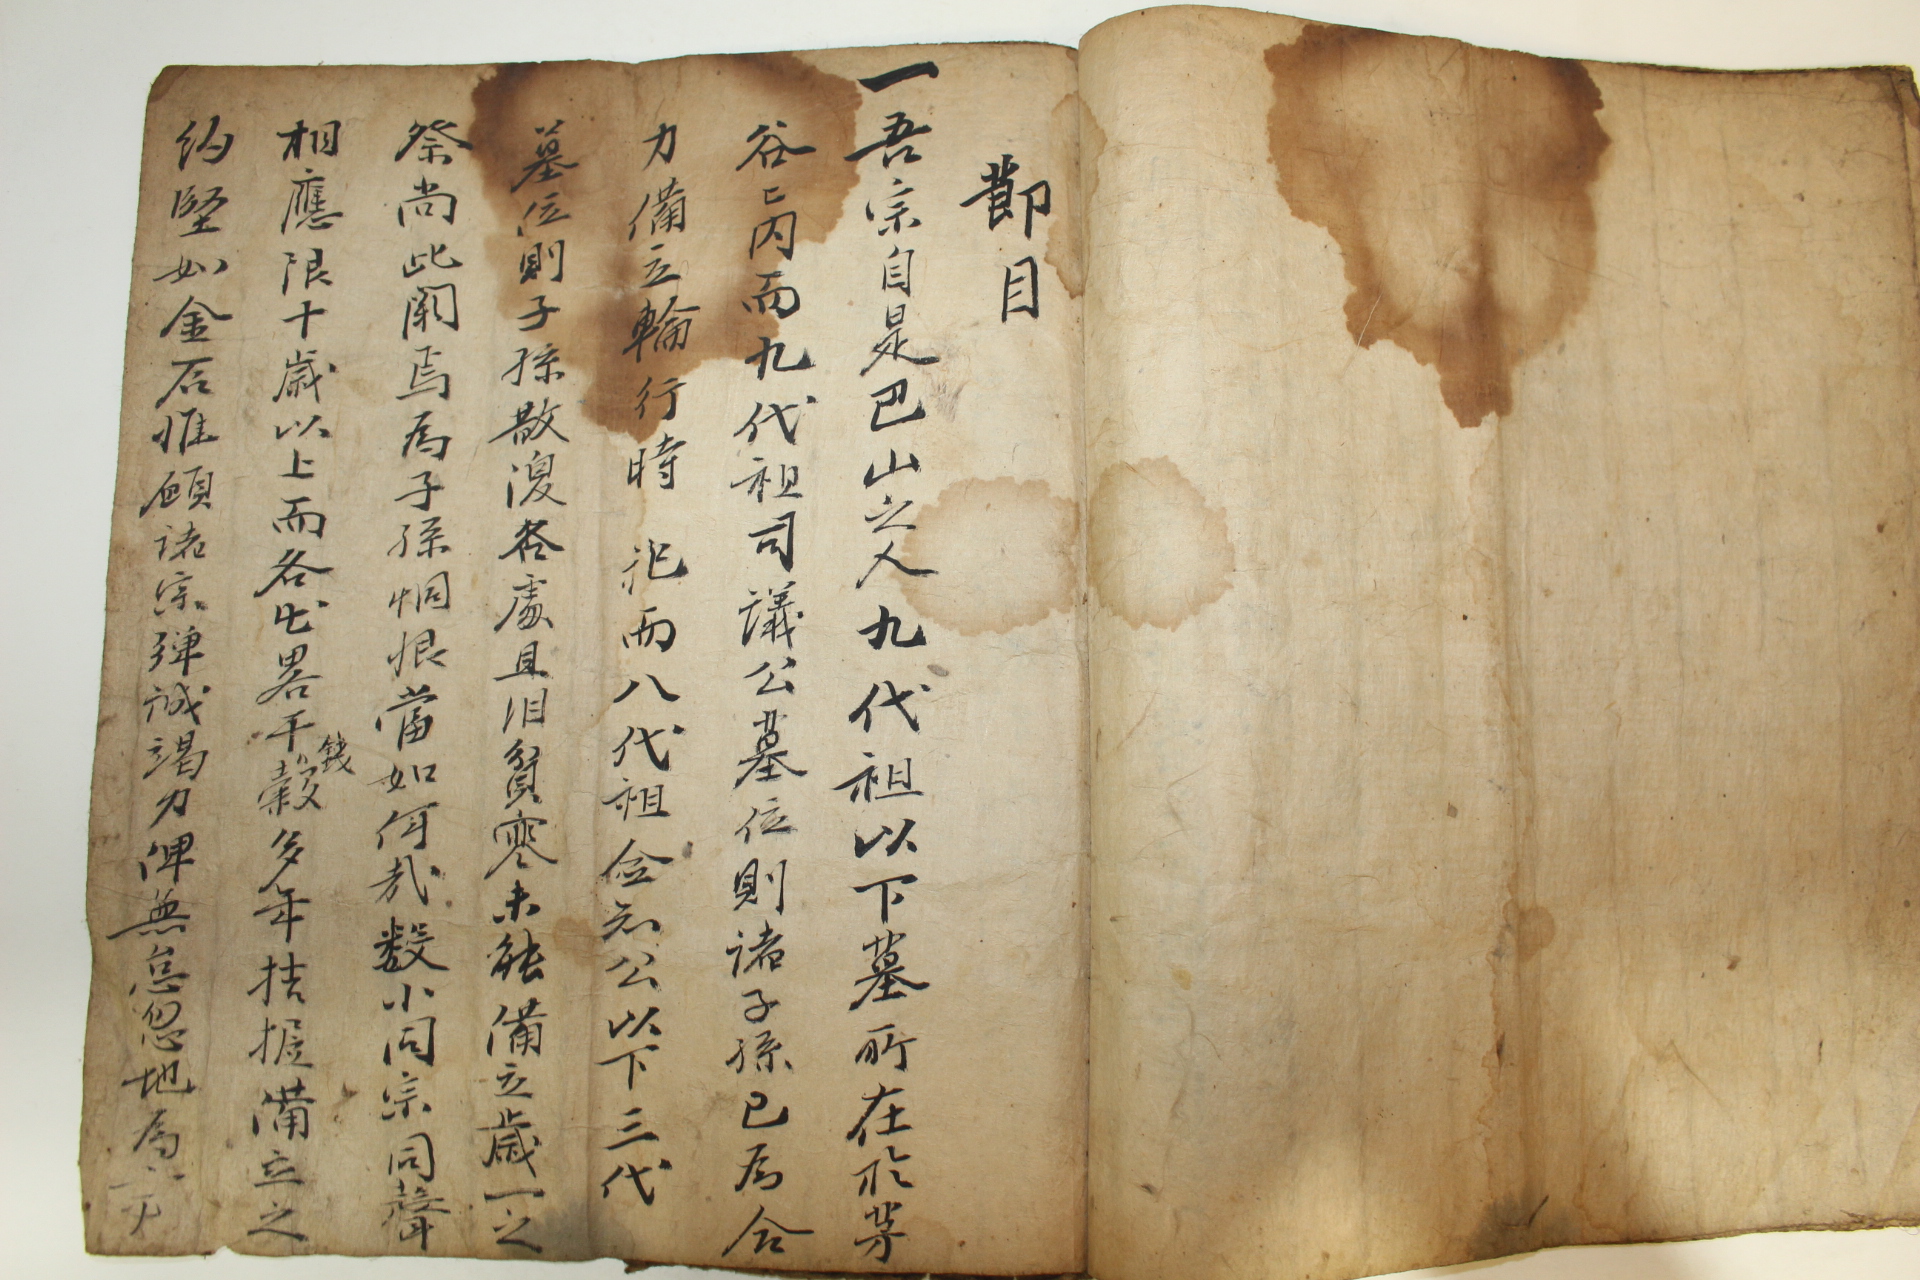 節目
一吾宗自是巴山之人九代祖以下墓所在於茅
谷已內而九代祖司議公墓位則諸子孫已爲合
力備立輪行時 祀而八代祖僉知公以下三代
墓位則子孫散漫各處且因貧寒未能備立歲一之
祭尚此闕焉爲子孫悃恨當如何哉數小同宗同聲
相應限十歲以上而各出畧干錢穀多年拮据備立之
約堅如金石惟願諸宗殫誠竭力俾無怠忽地爲